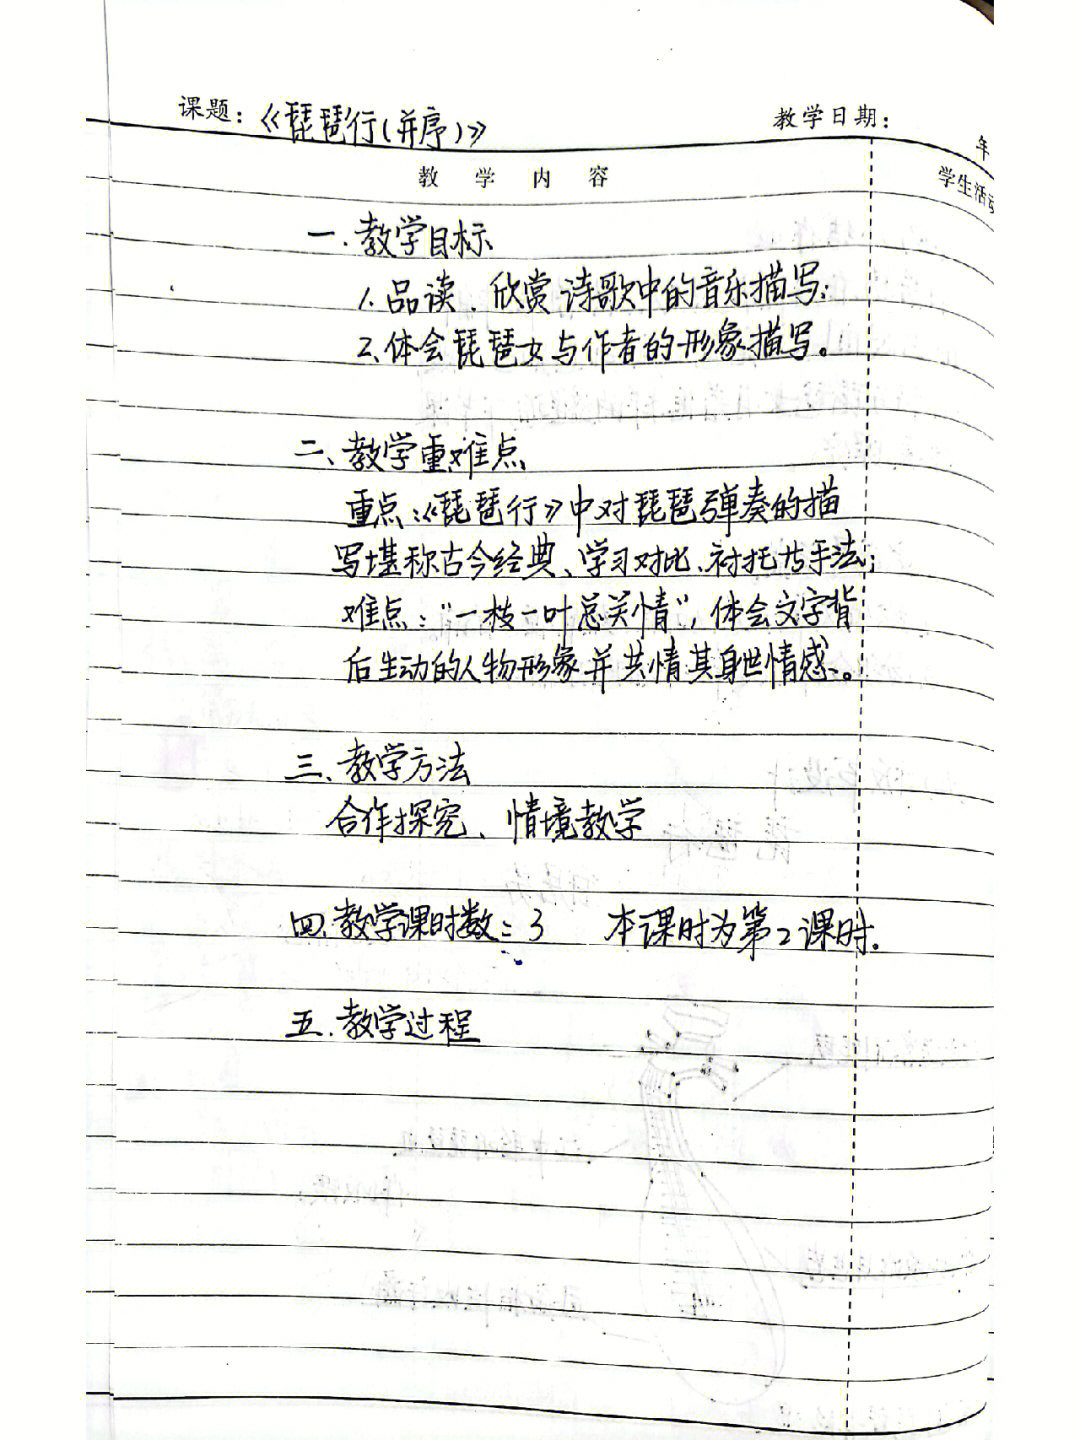 课题：《琵琶行(并序)》 教学日期： 年
教 学 内 容 学生活动
一.教学目标
1.品读、欣赏诗歌中的音乐描写；
2.体会琵琶女与作者的形象描写。
二、教学重难点
重点：《琵琶行》中对琵琶弹奏的描
写堪称古今经典、学习对比、衬托等手法；
难点："一枝一叶总关情"，体会文字背
后生动的人物形象并共情其身世情感。
三、教学方法
合作探究、情境教学
四.教学课时数：3 本课时为第2课时.
五.教学过程